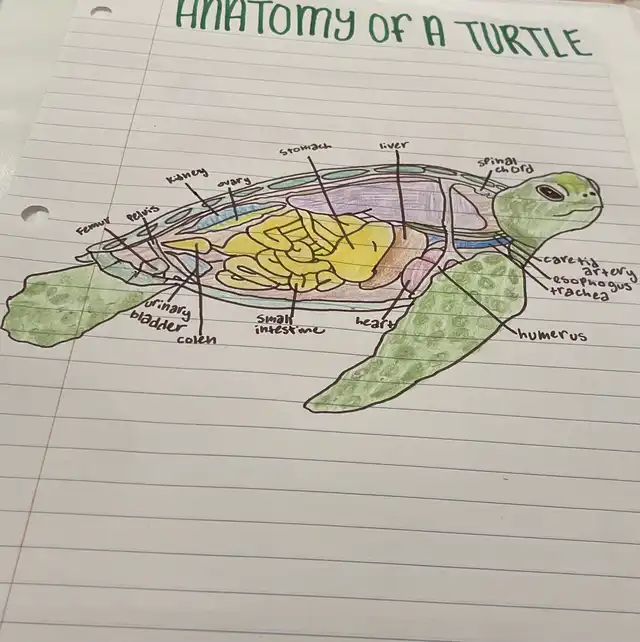 ANATOMY OF A TURTLE
stomach
liver
spinal
chord
kidney
ovary
Femur
Pelvis
carotid
artery
esophogus
trachea
urinary
bladder
colen
small
intestine
heart
humerus